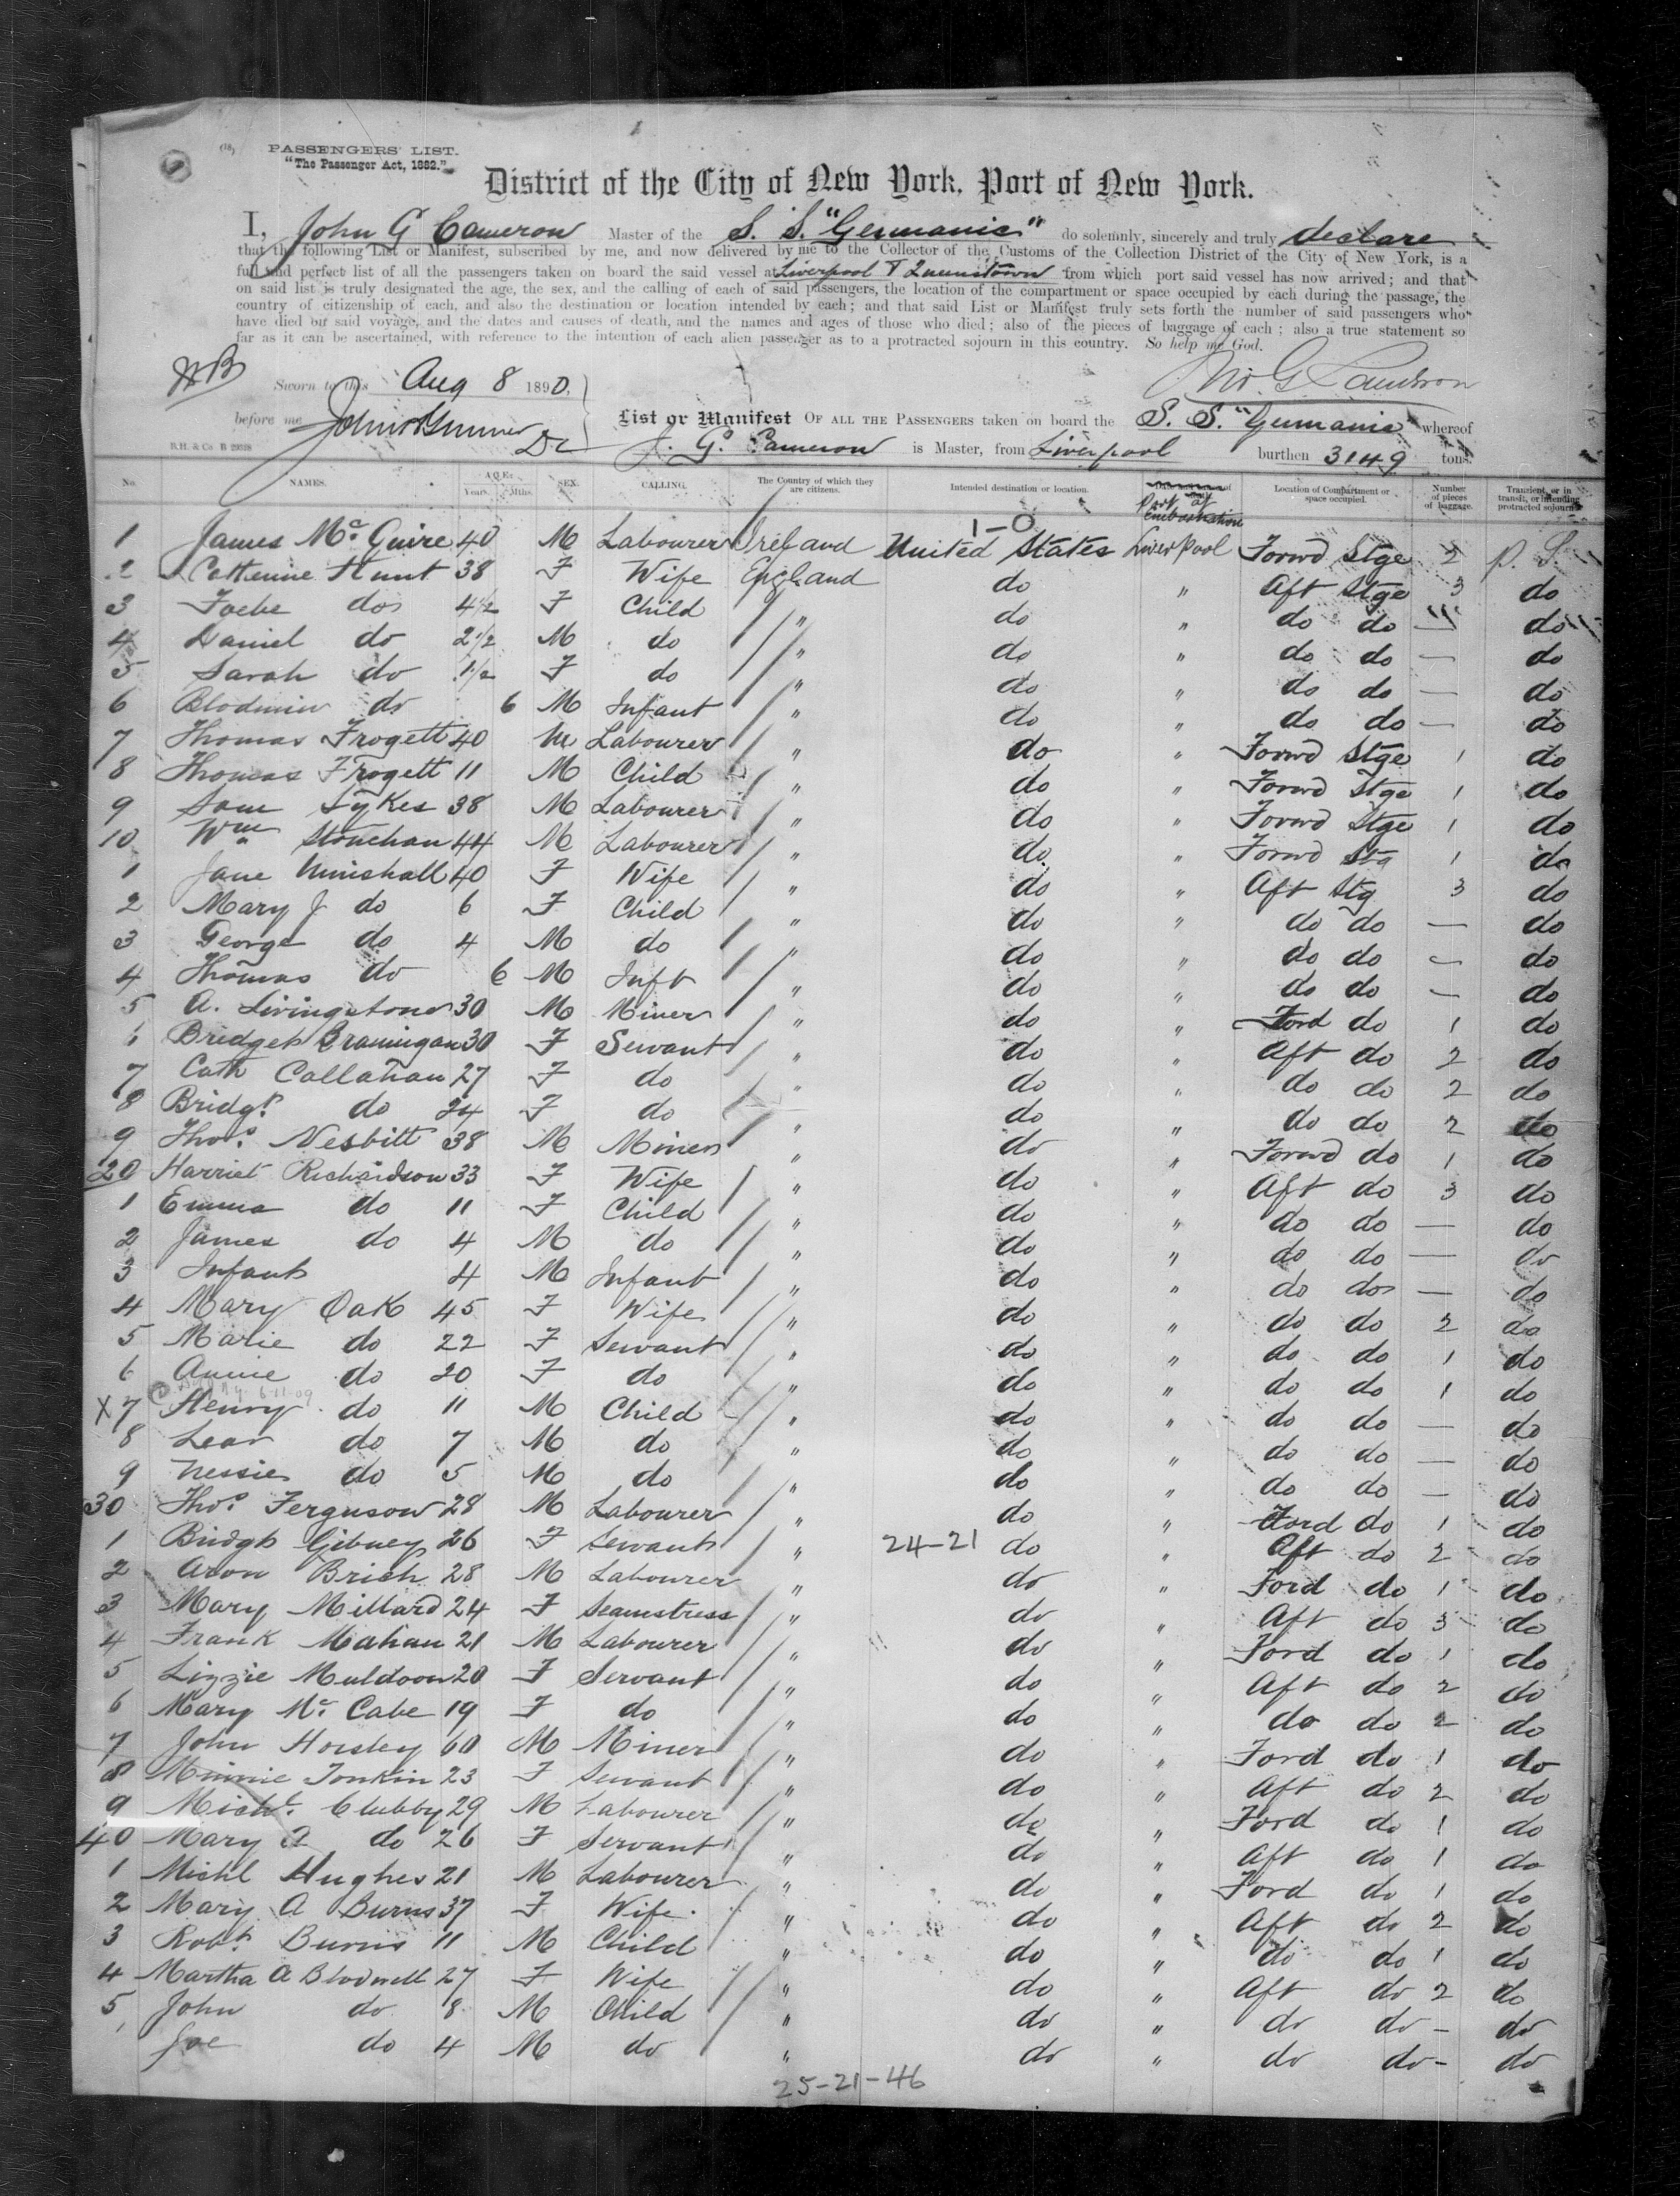 (18)
PASSENGERS' LIST.
"The Passenger Act, 1882."
District of the City of New York, Port of New York.
I, John G Cameron Master of the S. S. "Germanic" do solemnly, sincerely and truly declare
that the following List or Manifest, subscribed by me, and now delivered by me to the Collector of the Customs of the Collection District of the City of New York, is a
full and perfect list of all the passengers taken on board the said vessel at Liverpool & Queenstown from which port said vessel has now arrived; and that
on said list is truly designated the age, the sex, and the calling of each of said passengers, the location of the compartment or space occupied by each during the passage, the
country of citizenship of each, and also the destination or location intended by each; and that said List or Manifest truly sets forth the number of said passengers who
have died on said voyage, and the dates and causes of death, and the names and ages of those who died; also of the pieces of baggage of each; also a true statement so
far as it can be ascertained, with reference to the intention of each alien passenger as to a protracted sojourn in this country. So help me God.
Sworn to this Aug 8 1890, Jno G Cameron
before me
List or Manifest OF ALL THE PASSENGERS taken on board the S. S. "Germanic" whereof
J. G. Cameron is Master, from Liverpool burthen 3149 tons.
R.H. & Co. B 29318
No. NAMES. AGE. Years. Mths. SEX. CALLING. The Country of which they are citizens. Intended destination or location. Port of Embarkation Location of Compartment or space occupied. Number of pieces of baggage. Transient, or in transit, or intending protracted sojourn.
1-0
1 James McGuire 40 M Labourer Ireland United States Liverpool Forwd Stge 2 P. S.
2 Catherine Hunt 38 F Wife England do " Aft Stge 3 do
3 Foebe do 4 1/2 F Child " do " do do — do
4 Daniel do 2 1/2 M do " do " do do — do
5 Sarah do 1 1/2 F do " do " do do — do
6 Blodwin do 6 M Infant " do " do do — do
7 Thomas Frogett 40 M Labourer " do " Forwd Stge 1 do
8 Thomas Frogett 11 M Child " do " Forwd Stge 1 do
9 Sam Sykes 38 M Labourer " do " Forwd Stge 1 do
10 Wm Stonehan 44 M Labourer " do " Forwd Stg 1 do
1 Jane Minishall 40 F Wife " do " Aft Stg 3 do
2 Mary J do 6 F Child " do " do do — do
3 George do 4 M do " do " do do — do
4 Thomas do 6 M Inft " do " do do — do
5 A. Livingstone 30 M Miner " do " Ford do 1 do
6 Bridget Brannigan 30 F Servant " do " Aft do 2 do
7 Cath Callahan 27 F do " do " do do 2 do
8 Bridgt do 24 F do " do " do do 2 do
9 Thos. Nesbitt 38 M Miner " do " Forwd do 1 do
20 Harriet Richardson 33 F Wife " do " Aft do 3 do
1 Emma do 11 F Child " do " do do — do
2 James do 4 M do " do " do do — do
3 Infant 4 M Infant " do " do do — do
4 Mary Oak 45 F Wife " do " do do 2 do
5 Marie do 22 F Servant " do " do do 1 do
6 Annie do 20 F do " do " do do 1 do
X 7 Henry do 11 M Child " do " do do — do
8 Lear do 7 M do " do " do do — do
9 Nessie do 5 M do " do " do do — do
30 Thos. Ferguson 28 M Labourer " do " Ford do 1 do
1 Bridgt Gibney 26 F Servant " 24-21 do " Aft do 2 do
2 Aron Brich 28 M Labourer " do " Ford do 1 do
3 Mary Millard 24 F Seamstress " do " Aft do 3 do
4 Frank Mahan 21 M Labourer " do " Ford do 1 do
5 Lizzie Muldoon 20 F Servant " do " Aft do 2 do
6 Mary McCabe 19 F do " do " do do 2 do
7 John Horsley 60 M Miner " do " Ford do 1 do
8 Minnie Tonkin 23 F Servant " do " Aft do 2 do
9 Michl. Clubby 29 M Labourer " do " Ford do 1 do
40 Mary A do 26 F Servant " do " Aft do 1 do
1 Michl Hughes 21 M Labourer " do " Ford do 1 do
2 Mary A Burns 37 F Wife " do " Aft do 2 do
3 Robt. Burns 11 M Child " do " do do 1 do
4 Martha A Blodwell 27 F Wife " do " Aft do 2 do
5 John do 8 M Child " do " do do - do
Joe do 4 M do " do " do do - do
25-21-46